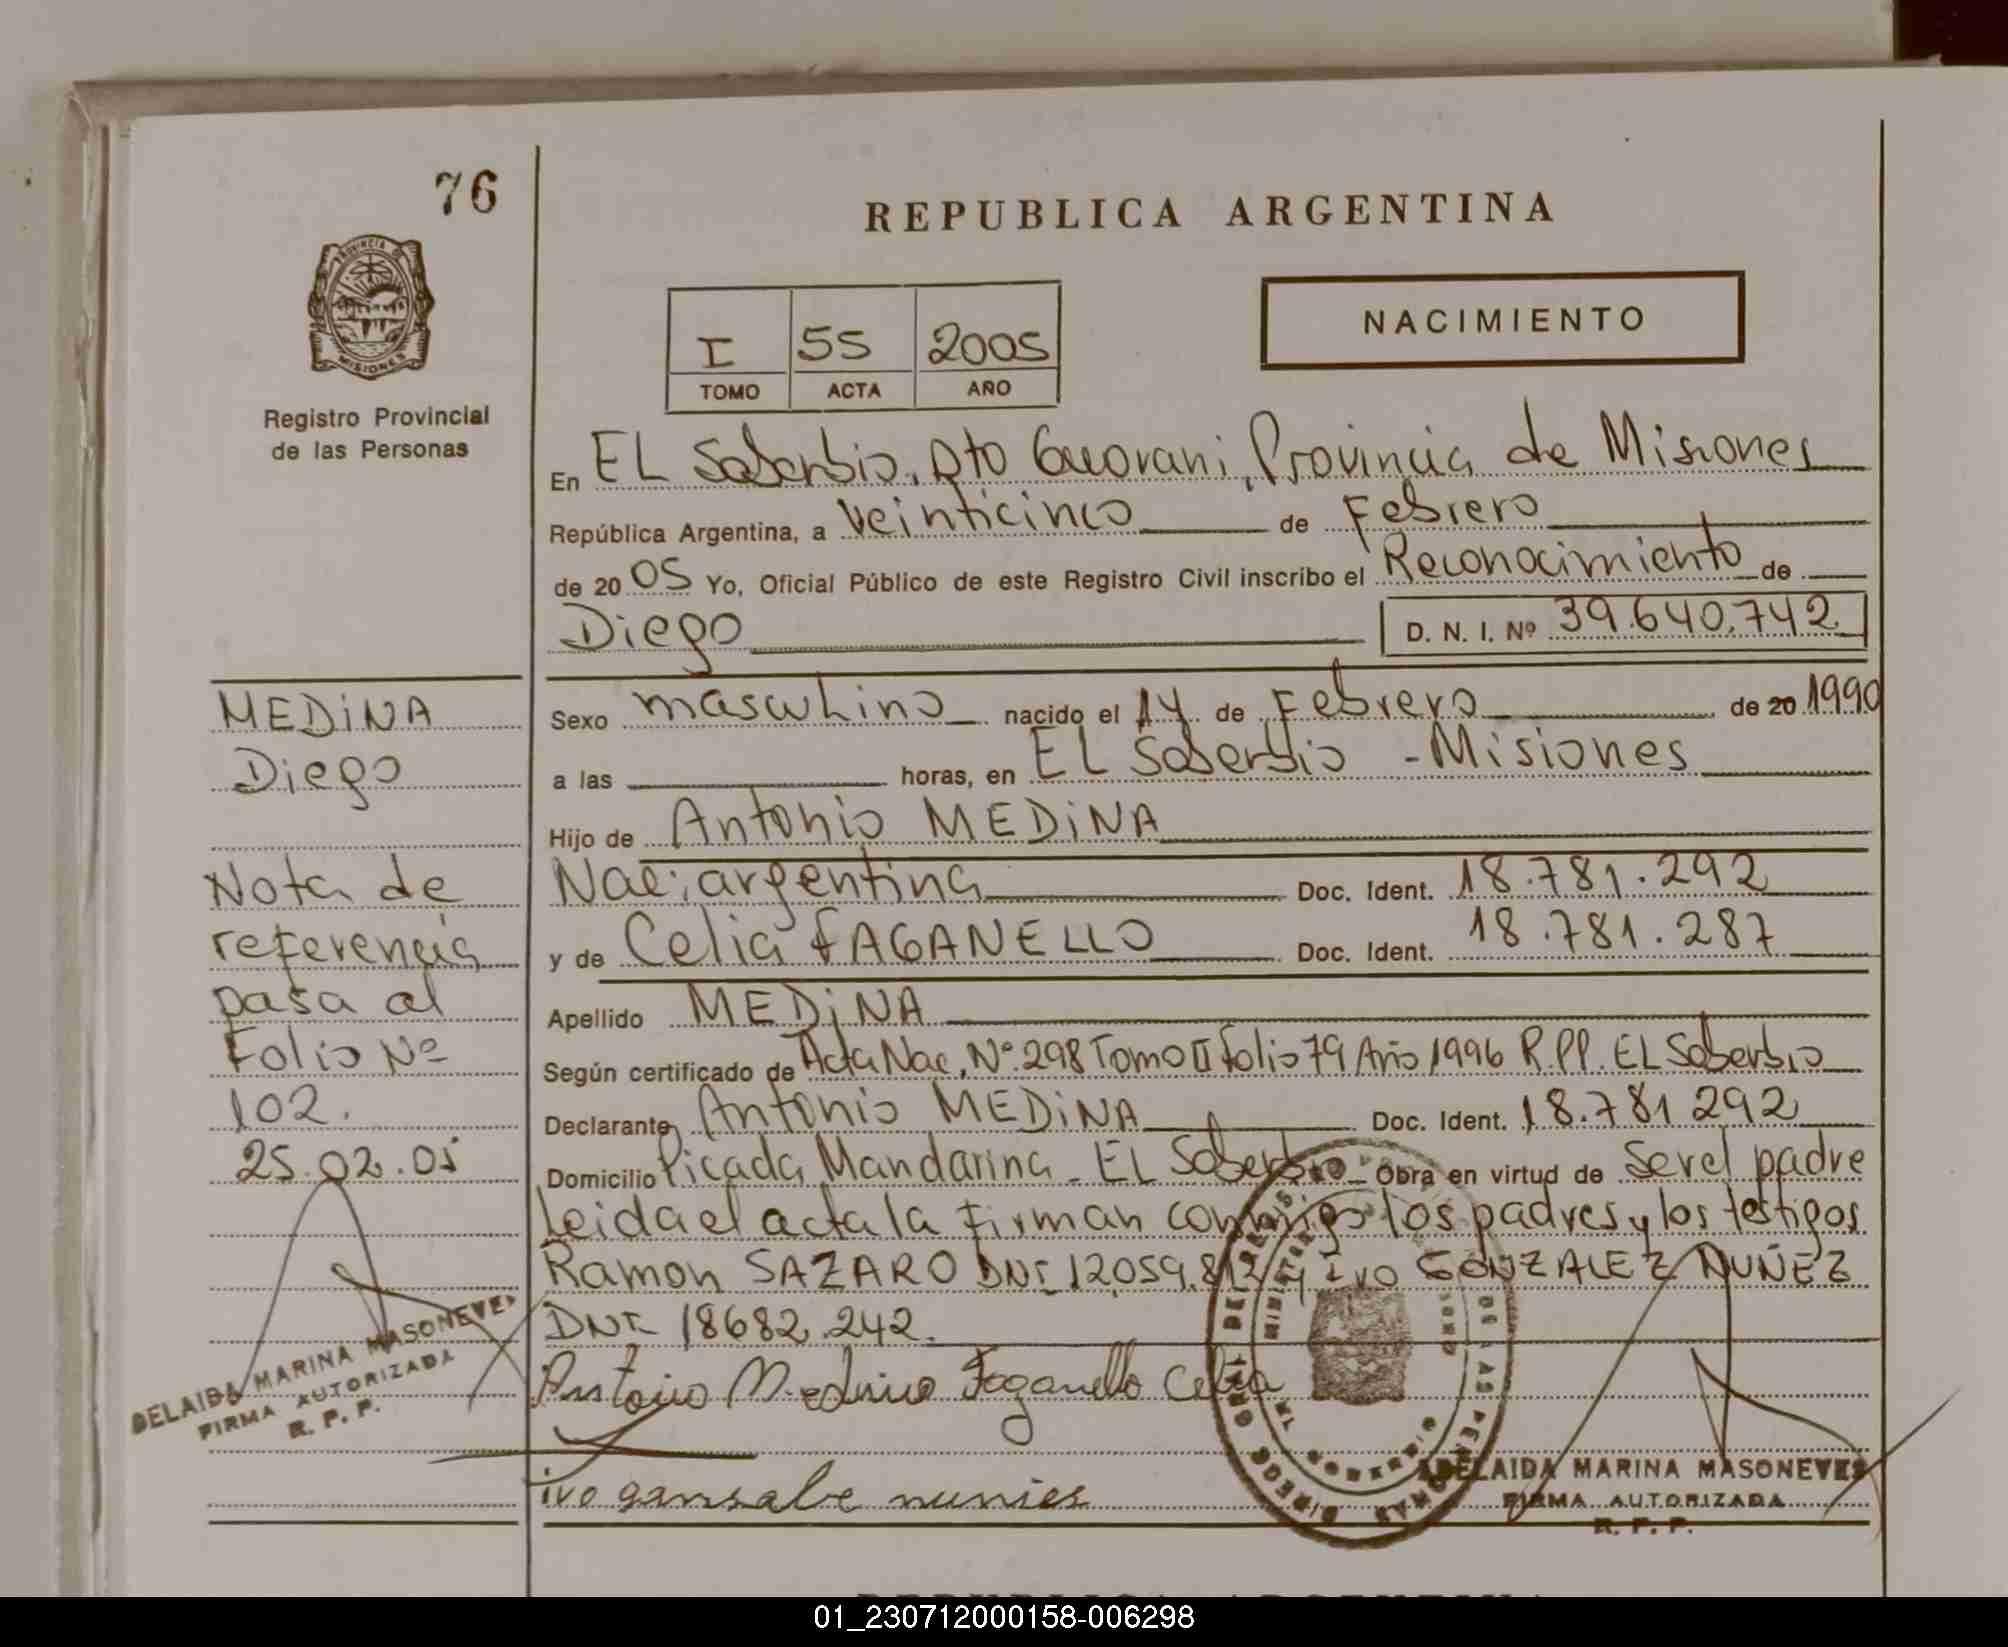 76
REPUBLICA ARGENTINA
PROVINCIA DE
MISIONES
Registro Provincial
de las Personas
I 55 2005
TOMO ACTA AÑO
NACIMIENTO
En EL Soberbio, Dto Guarani, Provincia de Misiones
República Argentina, a veinticinco de Febrero
de 20 05 Yo, Oficial Público de este Registro Civil inscribo el Reconocimiento de
Diego D. N. I. Nº 39.640.742
MEDiNA
Diego
Nota de
referencia
pasa al
Folio Nº
102.
25.02.05
ADELAIDA MARINA MASONEVES
FIRMA AUTORIZADA
R. P. P.
Sexo masculino nacido el 14 de Febrero de 20 1990
a las horas, en EL Soberbio - Misiones
Hijo de Antonio MEDiNA
Nac: argentina Doc. Ident. 18.781.292
y de Celia FAGANELLO Doc. Ident. 18.781.287
Apellido MEDiNA
Según certificado de Acta Nac. Nº 298 Tomo II Folio 79 Año 1996 R.PP. EL Soberbio
Declarante Antonio MEDiNA Doc. Ident. 18.781 292
Domicilio Picada Mandarina - EL Soberbio Obra en virtud de Ser el padre
Leida el acta la firman conmigo los padres y los testigos
Ramon SAZARO DNI 12.059.812 y Ivo GONZALEZ NUÑEZ
DNI 18682.242.
Antonio Medina Faganello Celia
ivo gansalve nunies
ADELAIDA MARINA MASONEVES
FIRMA AUTORIZADA
R. P. P.
01_230712000158-006298